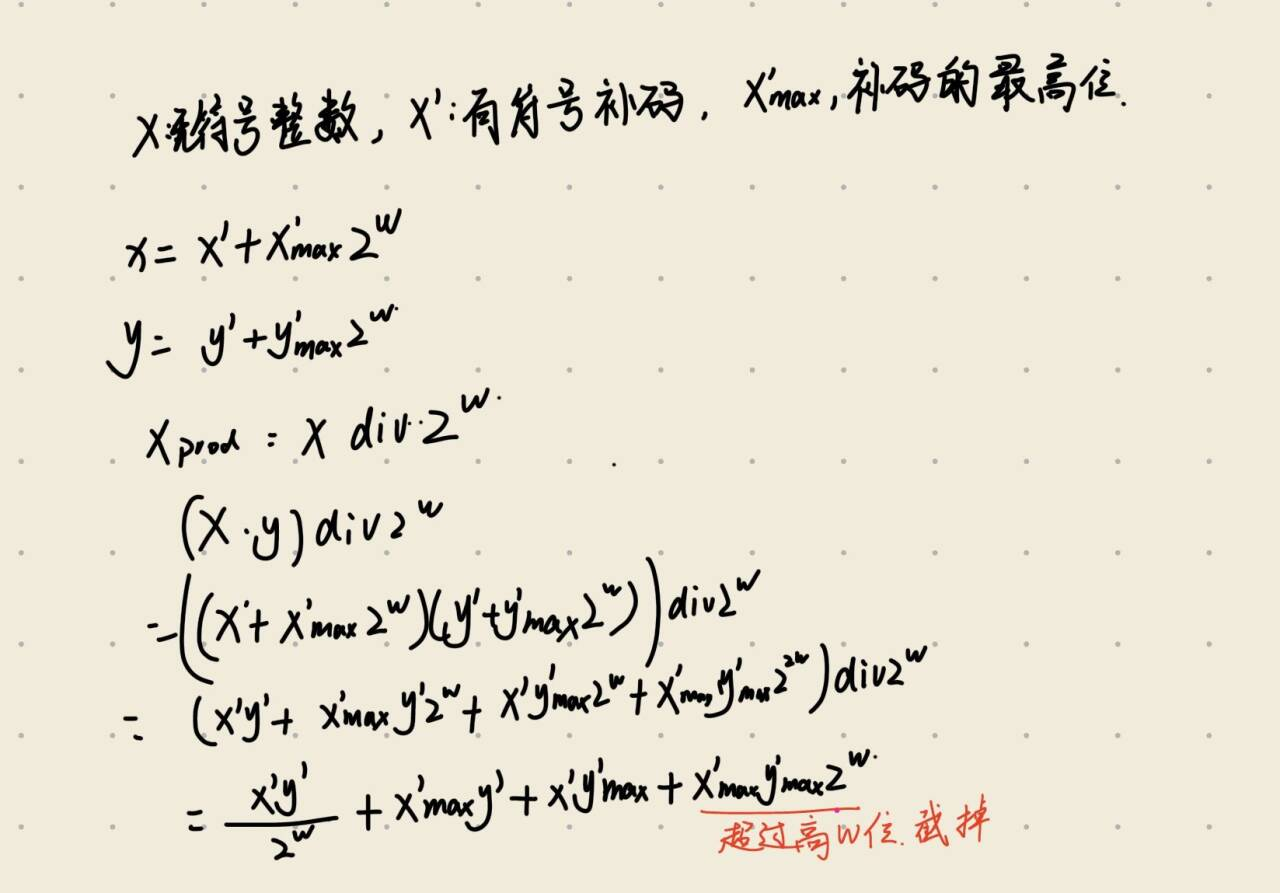 X:无符号整数, X':有符号补码, X'max, 补码的最高位.
x = x' + x'max 2^w
y = y' + y'max 2^w.
Xprod = X div 2^w.
(X·y) div 2^w
= ((X' + X'max 2^w)(y' + y'max 2^w)) div 2^w
= (x'y' + x'max y' 2^w + x'y'max 2^w + x'max y'max 2^2w) div 2^w
= x'y' / 2^w + x'max y' + x'y'max + x'max y'max 2^w.
超过高W位.截掉